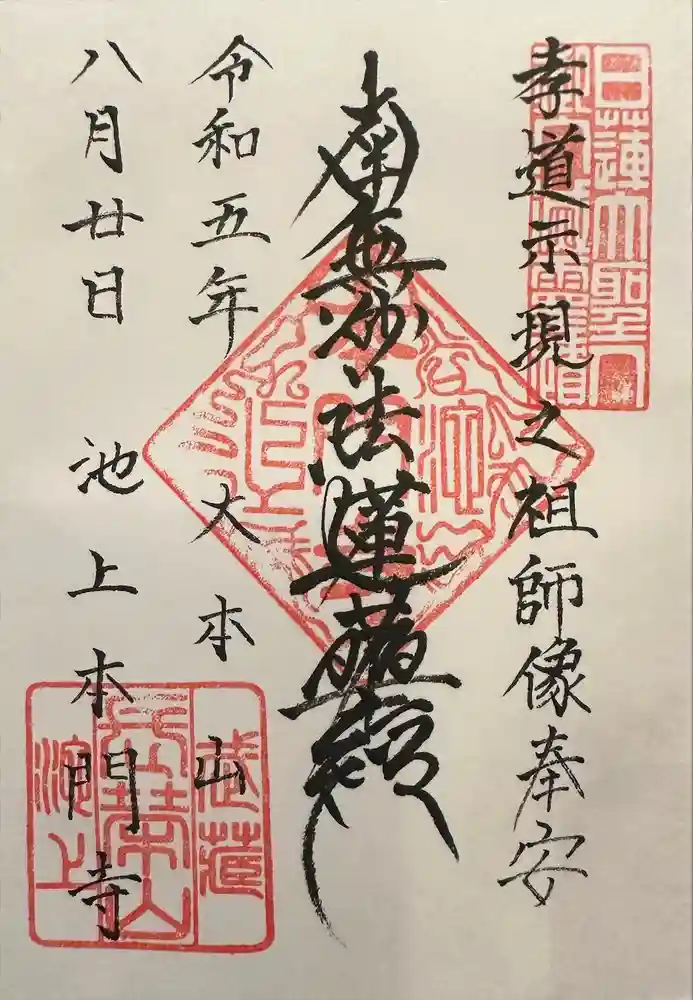 孝道示現之祖師像奉安
南無妙法蓮華経
令和五年
大本山
八月廿日
池上本門寺
日蓮大聖人
武蔵
池上